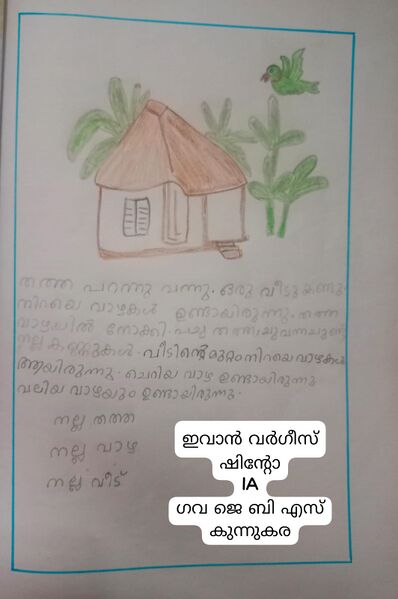 തത്ത പറന്നു വന്നു. ഒരു വീട്ടു കണ്ടു.
നിറയെ വാഴകൾ ഉണ്ടായിരുന്നു. തത്ത
വാഴയിൽ നോക്കി.
നല്ല കണ്ണുകൾ. വീടിൻ്റെ മുറ്റം നിറയെ വാഴകൾ
ആയിരുന്നു. ചെറിയ വാഴ ഉണ്ടായിരുന്നു
വലിയ വാഴയും ഉണ്ടായിരുന്നു.
നല്ല തത്ത
നല്ല വാഴ
നല്ല വീട്
ഇവാൻ വർഗീസ്
ഷിന്റോ
IA
ഗവ ജെ ബി എസ്
കുന്നുകര